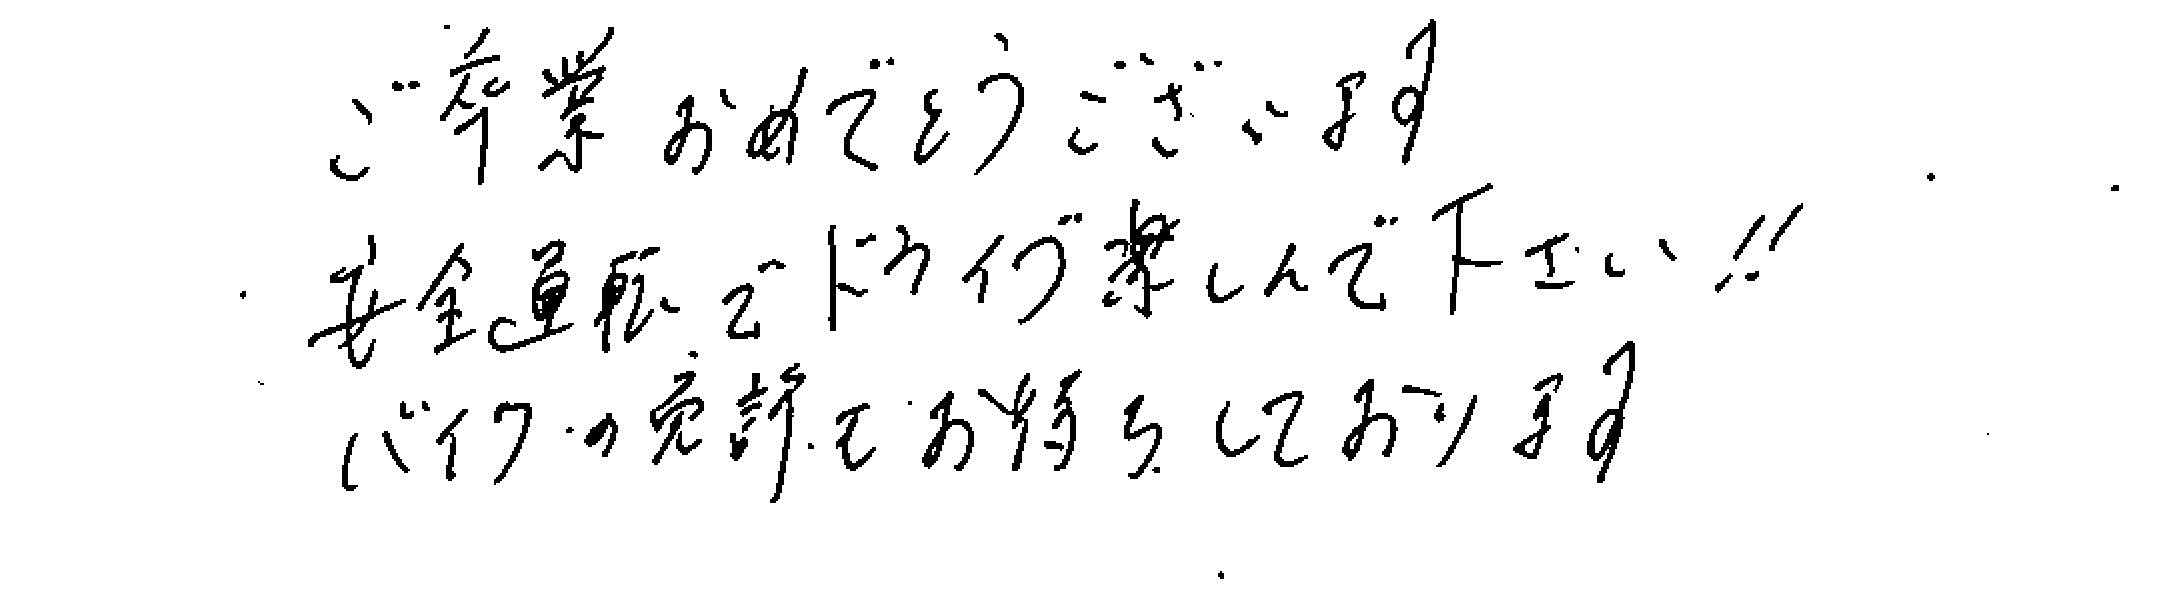 ご卒業おめでとうございます
安全運転でドライブ楽しんで下さい!!
バイクの免許もお待ちしております